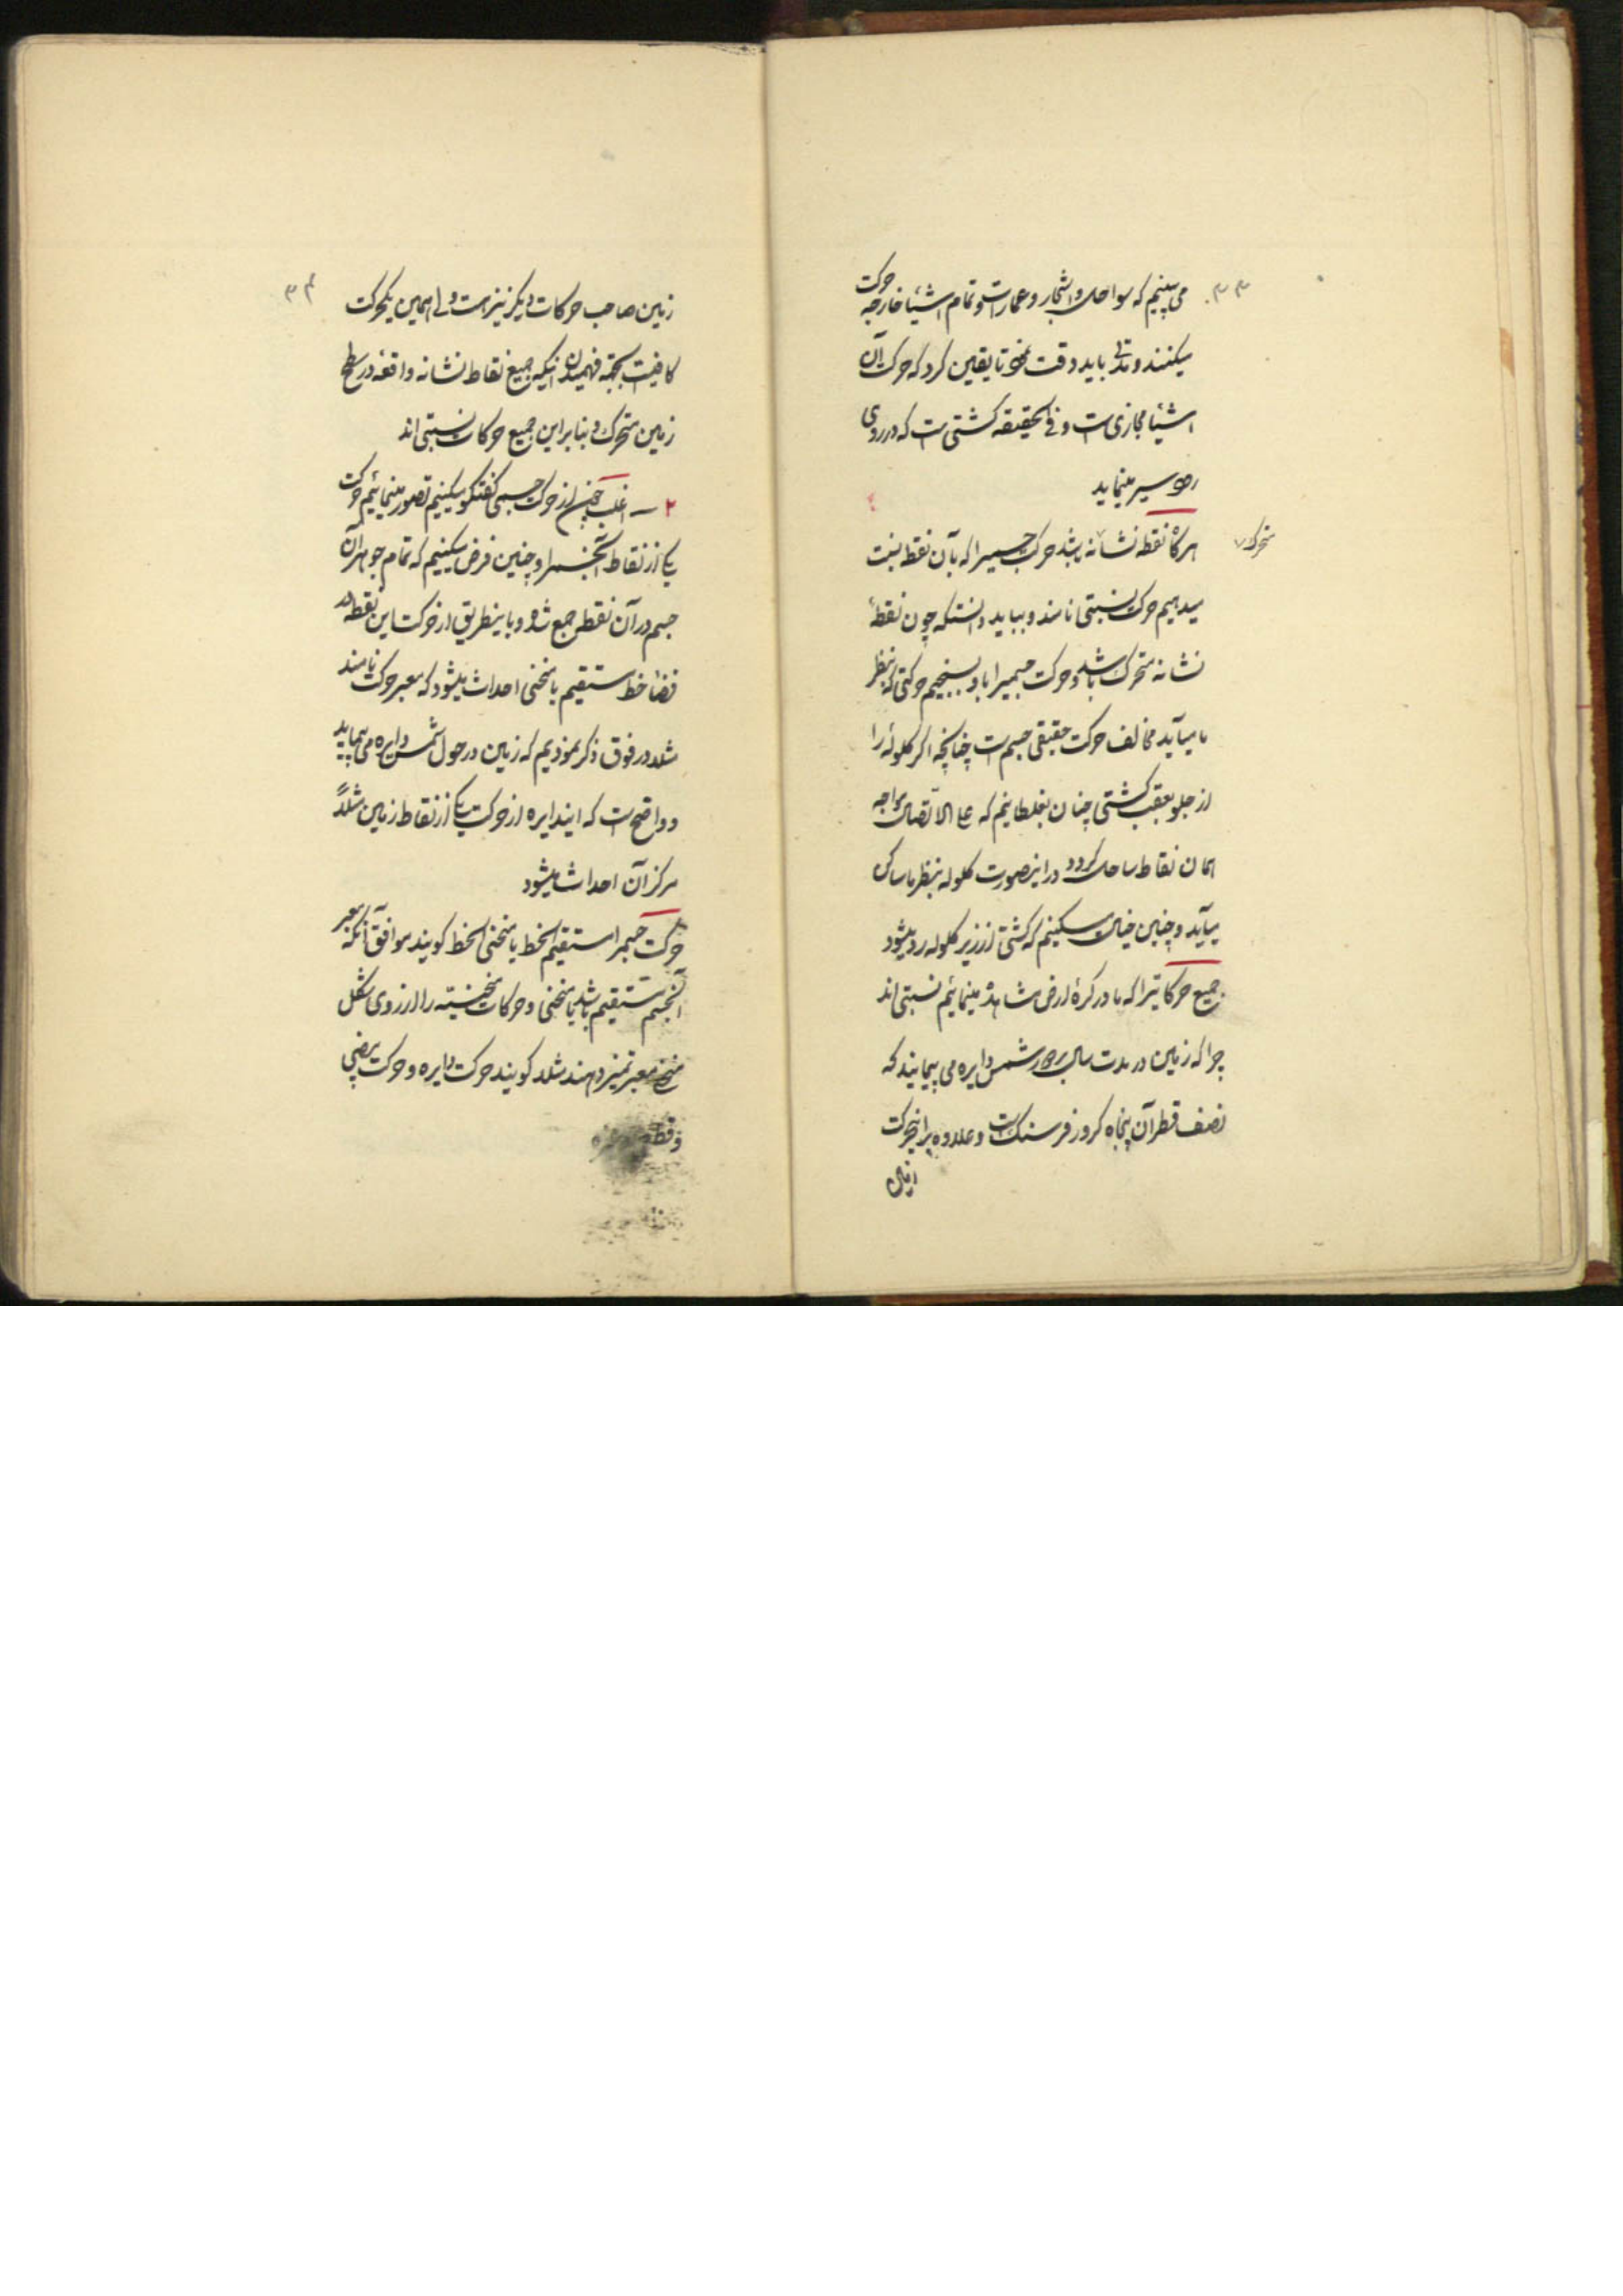 ۳۳
می بینیم که سواحل و اشجار و عمارات و تمام اشیاء خارجه حرکت
میکنند و قدری باید دقت نمود تا یقین کرد که حرکت آن
اشیاء مجازی است و فی الحقیقه کشتی است که در روی
رود سیر مینماید
هرگاه نقطه نشانه باشد حرکت جسمیرا که بآن نقطه نسبت
متحرک
میدهیم حرکت نسبتی نامند و بباید دانست که چون نقطهٔ
نشانه متحرک باشد و حرکت جسمیرا باو بسنجیم حرکتی که بنظر
ما میآید مخالف حرکت حقیقی جسم است چنانچه اگر گلولهٔ را
از جلو بعقب کشتی چنان بغلطانیم که علی الاتصال مواجه
همان نقاط ساحل گردد در اینصورت گلوله بنظر ما ساکن
میآید و چنین خیال میکنیم که کشتی از زیر گلوله رد میشود
جمیع حرکاتیرا که ما در کرهٔ ارض مشاهده مینمائیم نسبتی اند
چرا که زمین در مدت سال بر دور شمس دایره می پیمایند که
نصف قطر آن پنجاه کرور فرسنگ است و علاوه بر اینحرکت
زمین
۳۴
زمین صاحب حرکات دیگر نیز هست ولی همین یکحرکت
کافیست بجهة فهمیدن اینکه جمیع نقاط نشانه واقعه در سطح
زمین متحرک و بنابراین جمیع حرکات نسبتی اند
۲ — اغلب چون از حرکت جسمی گفتگو میکنیم تصور مینمائیم حرکت
یکی از نقاط آنجسم را و چنین فرض میکنیم که تمام جوهر آن
جسم در آن نقطه جمع شده و باینطریق از حرکت این نقطه در
فضا خط مستقیم یا منحنی احداث میشود که معبر حرکت نامند
مثلا در فوق ذکر نمودیم که زمین در حول شمس دایره می پیماید
و واضح است که ایندایره از حرکت یکی از نقاط زمین مثلاً
مرکز آن احداث میشود
حرکت جسم را مستقیم الخط یا منحنی الخط گویند موافق آنکه معبر
آنجسم مستقیم باشد یا منحنی و حرکات منحنیه را از روی شکل
منحنی معبر تمیز دهند مثلا گویند حرکت دایره و حرکت بیضی
و قطع